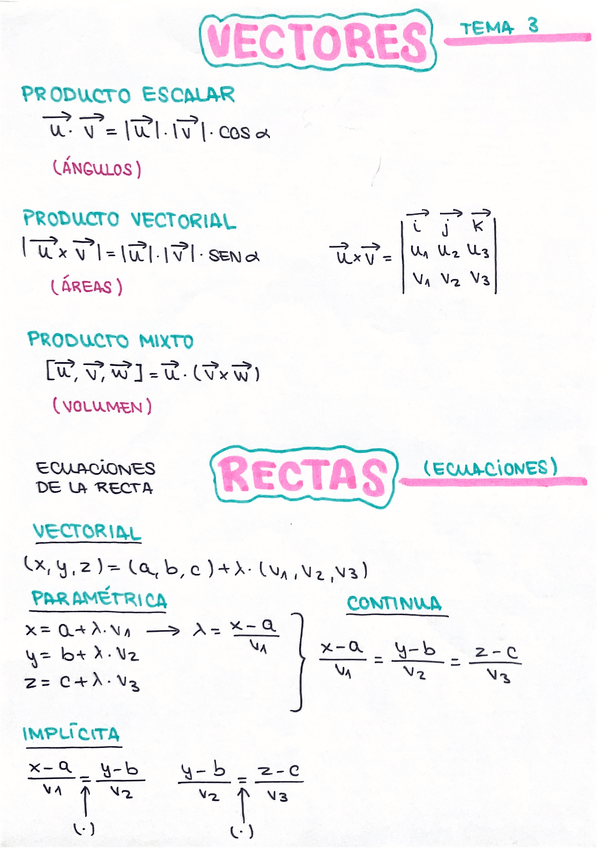 VECTORES TEMA 3
PRODUCTO ESCALAR
u⃗ · v⃗ = |u⃗| · |v⃗| · COS α
(ÁNGULOS)
PRODUCTO VECTORIAL
|u⃗ × v⃗| = |u⃗| · |v⃗| · SEN α
(ÁREAS)
u⃗ × v⃗ =
| i⃗ j⃗ k⃗ |
| u₁ u₂ u₃ |
| v₁ v₂ v₃ |
PRODUCTO MIXTO
[u⃗, v⃗, w⃗] = u⃗ · (v⃗ × w⃗)
(VOLUMEN)
ECUACIONES
DE LA RECTA
RECTAS (ECUACIONES)
VECTORIAL
(x, y, z) = (a, b, c) + λ · (v₁, v₂, v₃)
PARAMÉTRICA
x = a + λ · v₁ → λ = (x - a)/v₁
y = b + λ · v₂
z = c + λ · v₃
CONTINUA
(x - a)/v₁ = (y - b)/v₂ = (z - c)/v₃
IMPLÍCITA
(x - a)/v₁ = (y - b)/v₂ (y - b)/v₂ = (z - c)/v₃
↑ ↑
(·) (·)